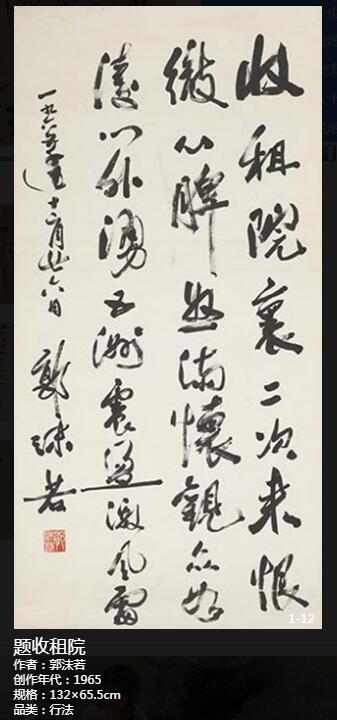 收租院裏二次來恨
徹心脾怒滿懷觀衆如
濤门外湧五洲震盪激風雷
十二月廿六日
郭沫若
1-12
题收租院
作者：郭沫若
创作年代：1965
规格：132×65.5cm
品类：行法